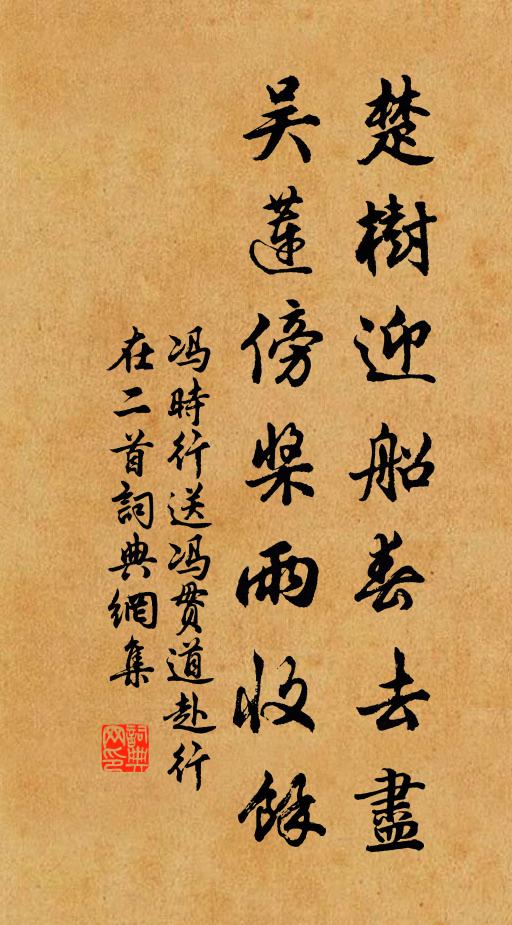 楚樹迎船春去盡
吳蓮傍槳雨收餘
冯時行送冯貫道赴行
在二首詞典網集
詞典網印